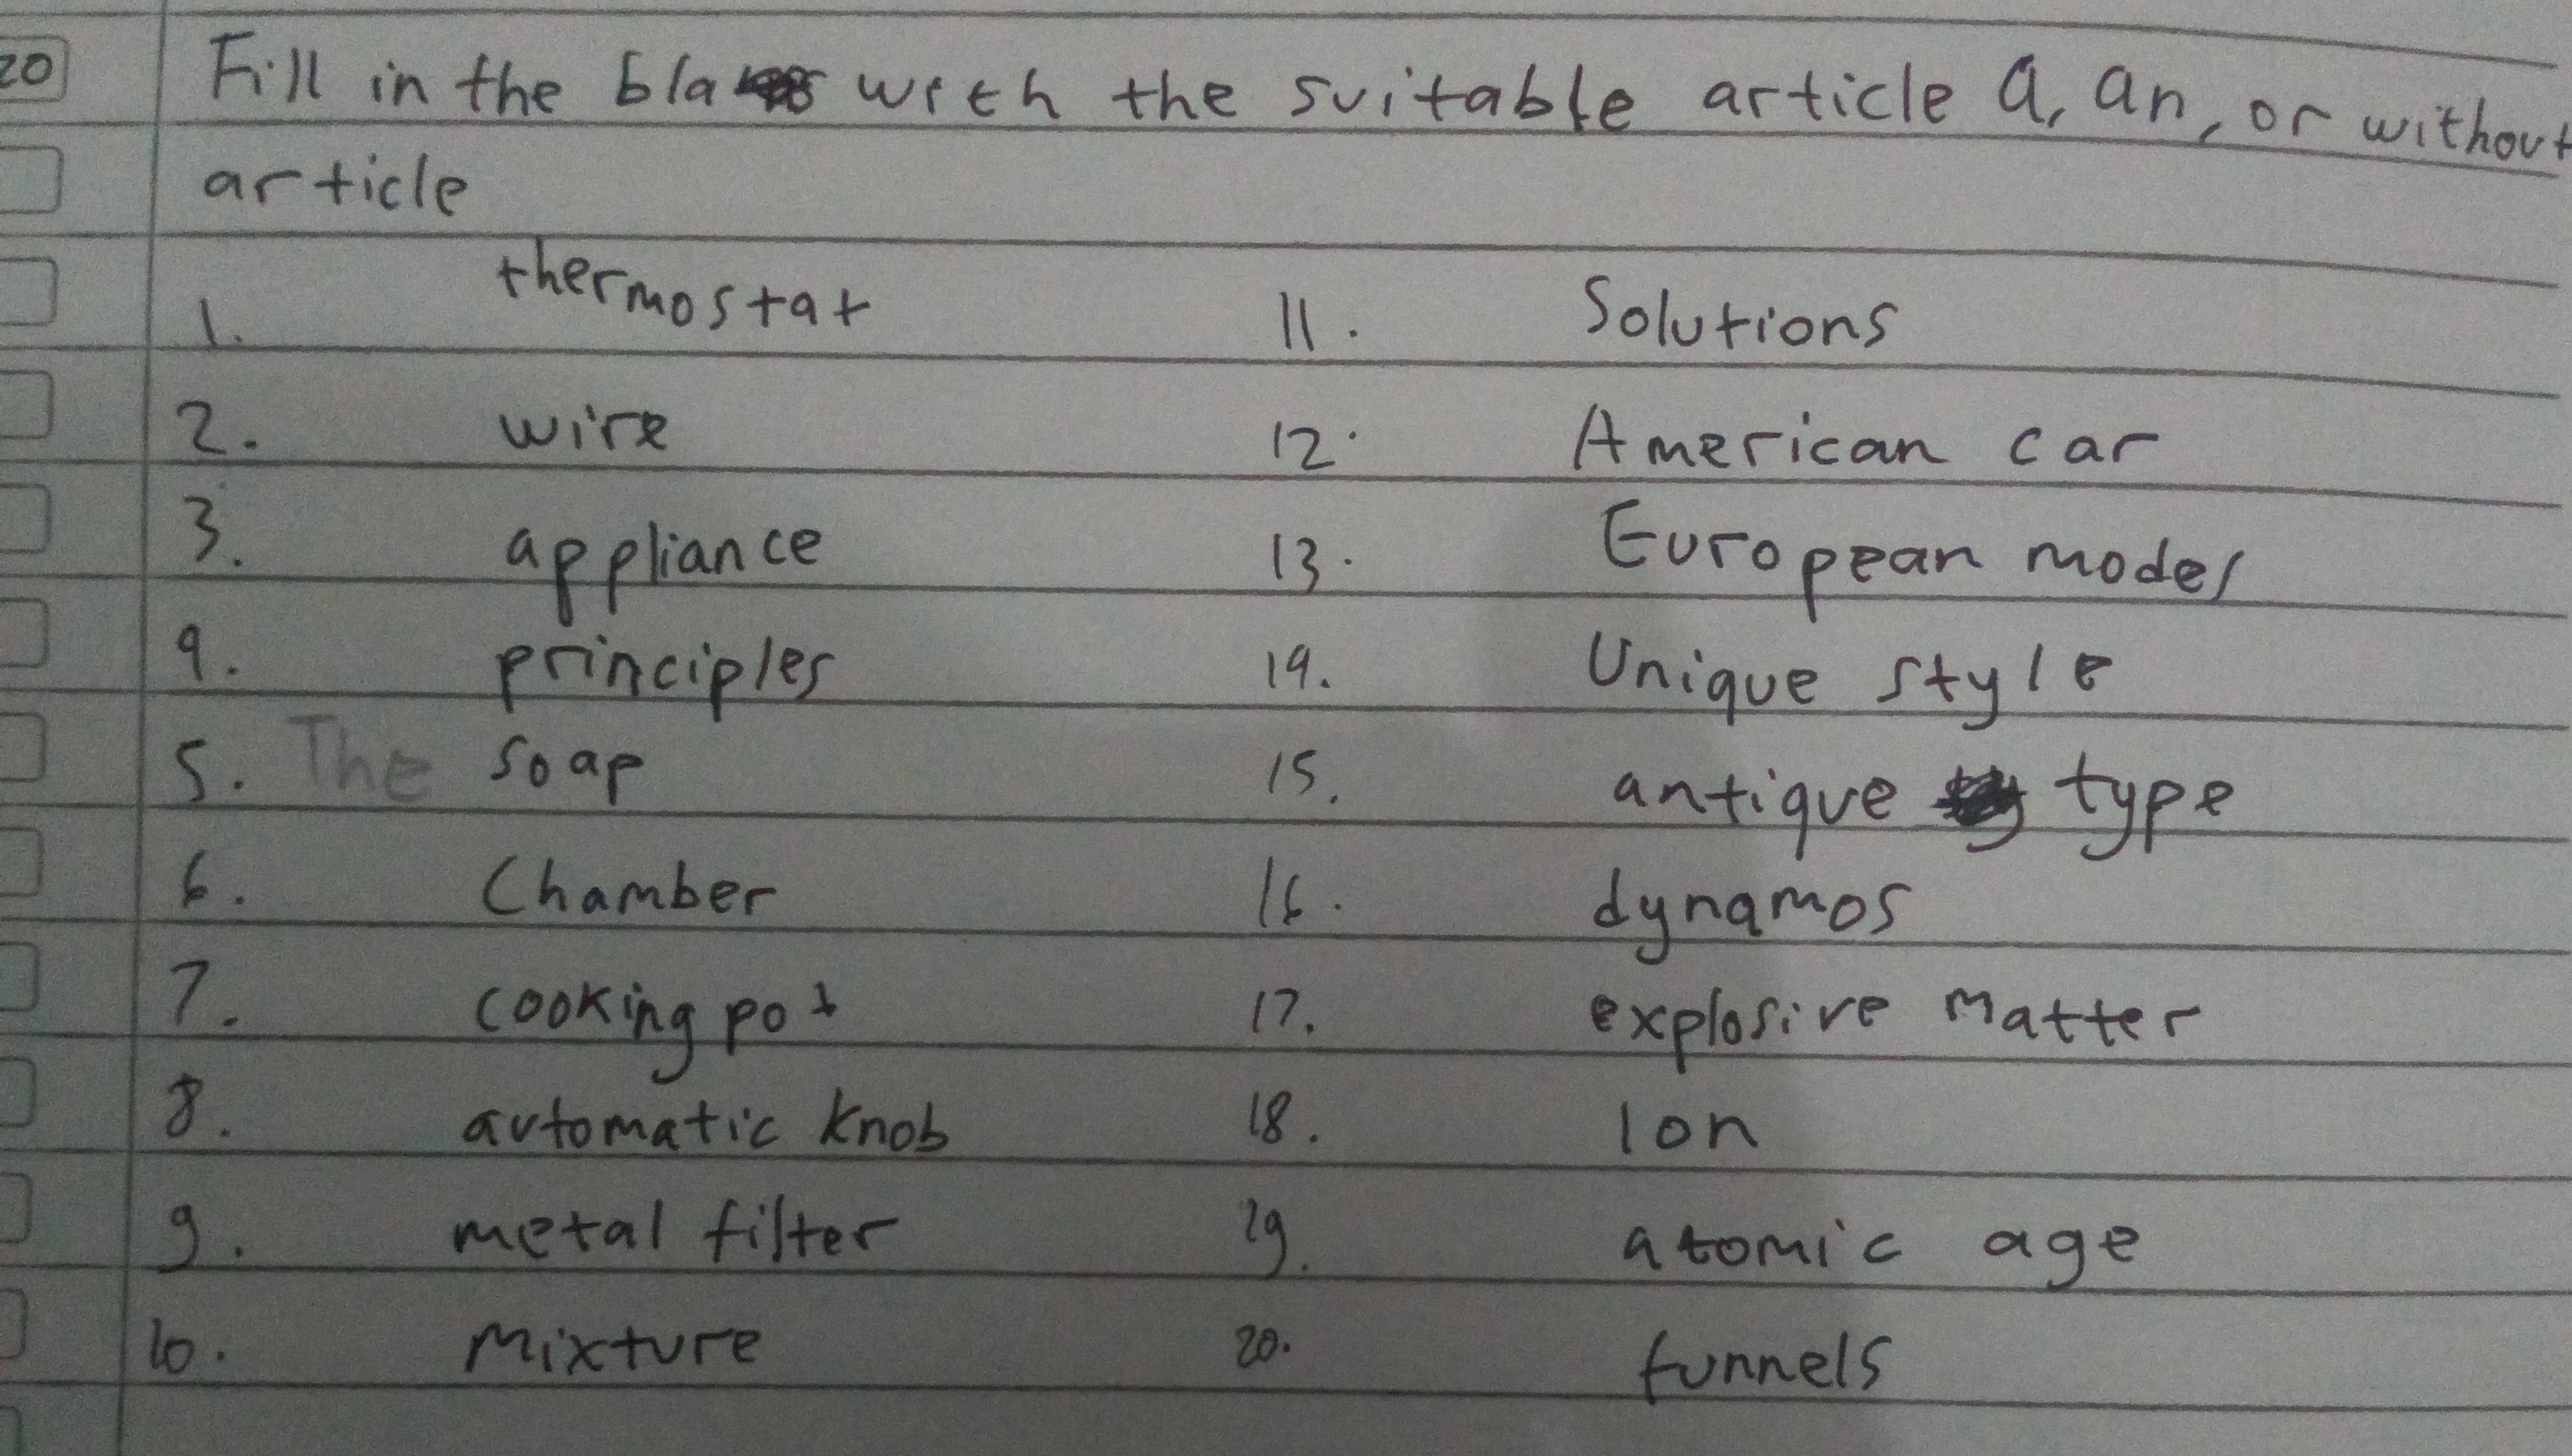 20
Fill in the with the suitable article a, an, or without
article
1. thermostat 11. Solutions
2. wire 12. American car
3. appliance 13. European model
4. principles 14. Unique style
5. The soap 15. antique type
6. Chamber 16. dynamos
7. cooking pot 17. explosive matter
8. automatic knob 18. Ion
9. metal filter 19. atomic age
10. mixture 20. funnels